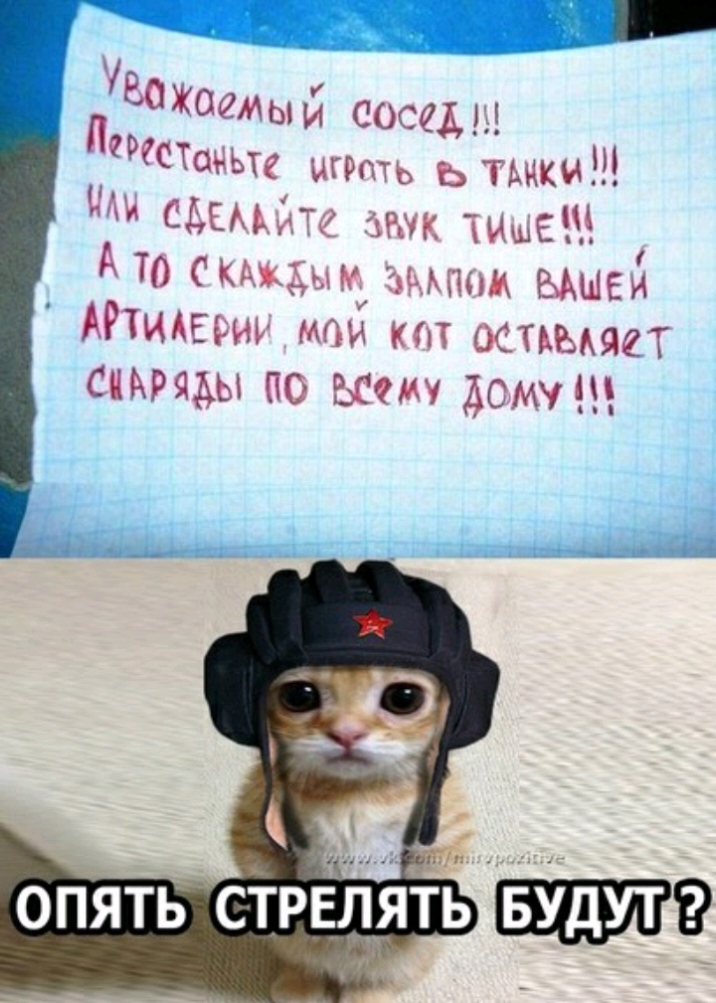 Уважаемый сосед!!!
Перестаньте играть в танки!!!
Или сделайте звук тише!!!
А то с каждым залпом вашей
артилерии, мой кот оставляет
снаряды по всему дому!!!
www.vk.com/mirvpozitive
ОПЯТЬ СТРЕЛЯТЬ БУДУТ?